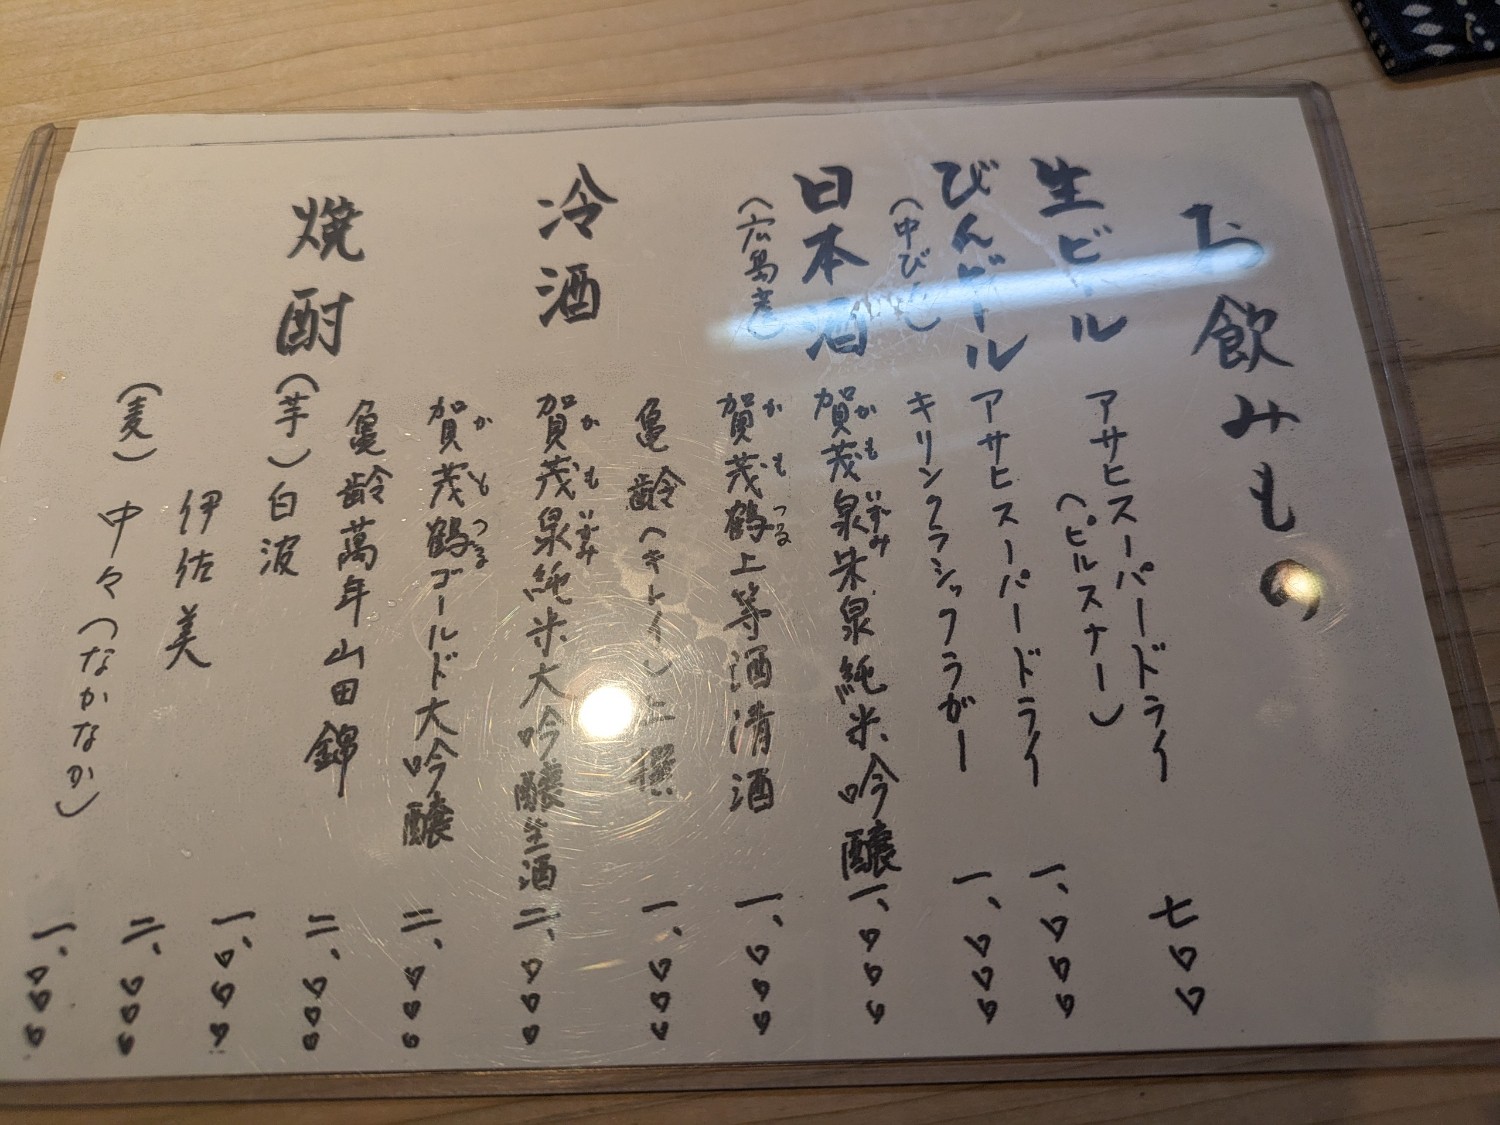 お飲みもの
生ビール
アサヒスーパードライ
(ピルスナー)
七〇〇
びんビール
(中びん)
アサヒスーパードライ
一、〇〇〇
キリンクラシックラガー
一、〇〇〇
日本酒
(広島産)
賀茂泉朱泉純米吟醸
かもいずみ
一、〇〇〇
賀茂鶴上等酒清酒
かもつる
一、〇〇〇
亀齢(キレイ)上撰
一、〇〇〇
冷酒
賀茂泉純米大吟醸生酒
かもいずみ
二、〇〇〇
賀茂鶴ゴールド大吟醸
かもつる
二、〇〇〇
亀齢萬年山田錦
二、〇〇〇
焼酎
(芋)白波
一、〇〇〇
伊佐美
二、〇〇〇
(麦)中々(なかなか)
一、〇〇〇